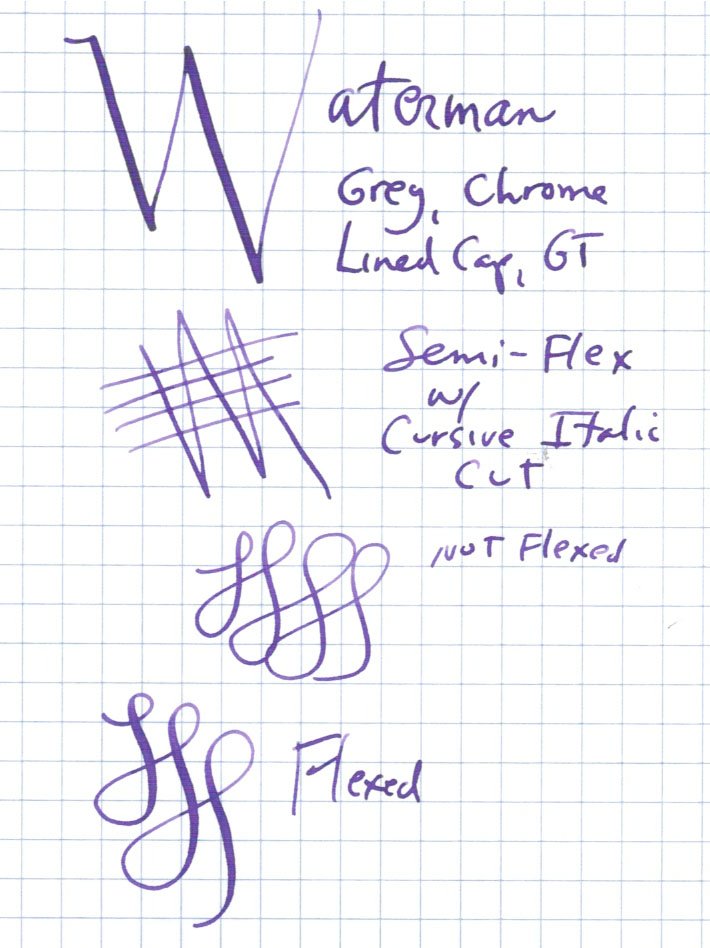 Waterman
Grey, Chrome
Lined Cap, GT
Semi-Flex
w/
Cursive Italic
Cut
Not Flexed
Flexed